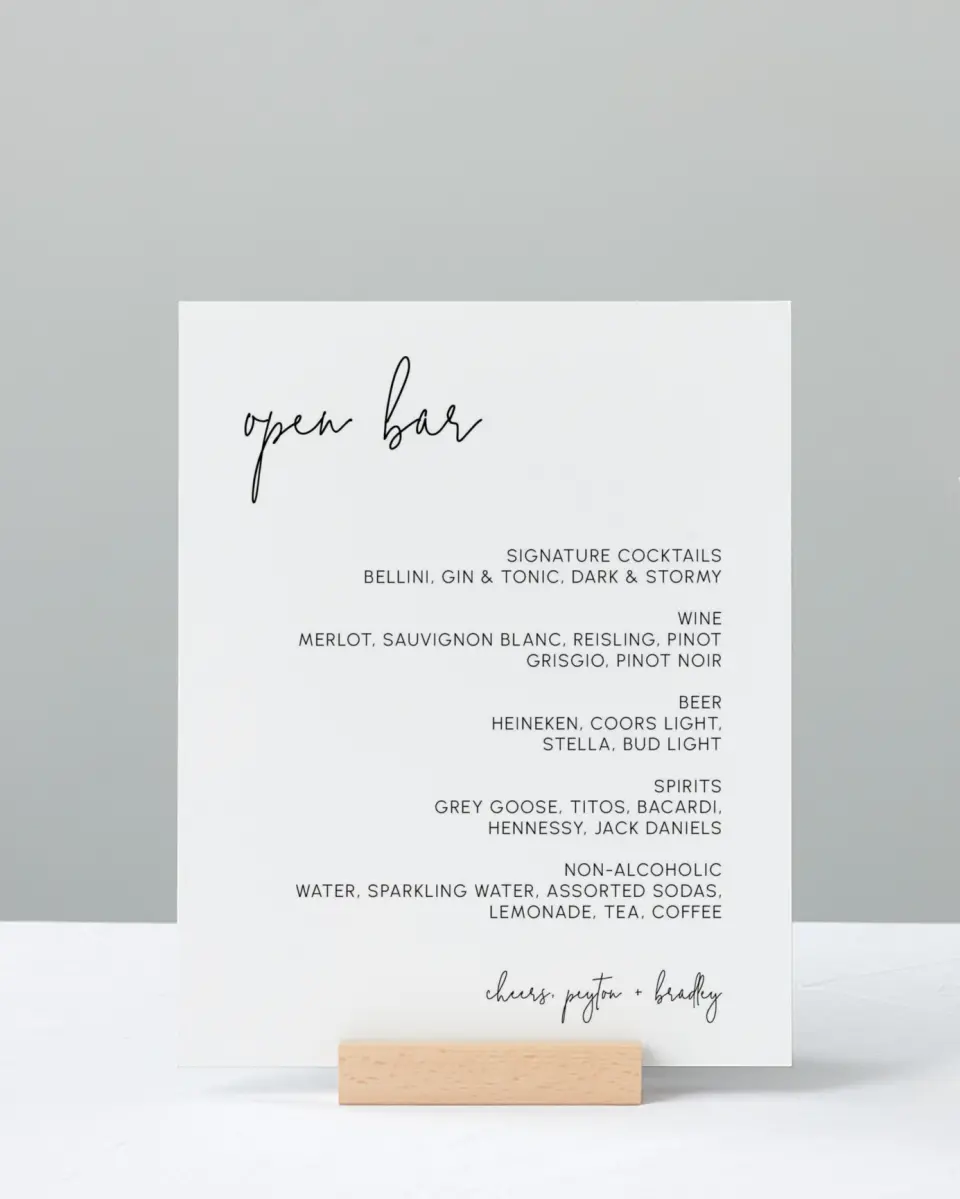 open bar
SIGNATURE COCKTAILS
BELLINI, GIN & TONIC, DARK & STORMY
WINE
MERLOT, SAUVIGNON BLANC, REISLING, PINOT
GRISGIO, PINOT NOIR
BEER
HEINEKEN, COORS LIGHT,
STELLA, BUD LIGHT
SPIRITS
GREY GOOSE, TITOS, BACARDI,
HENNESSY, JACK DANIELS
NON-ALCOHOLIC
WATER, SPARKLING WATER, ASSORTED SODAS,
LEMONADE, TEA, COFFEE
cheers, peyton + bradley